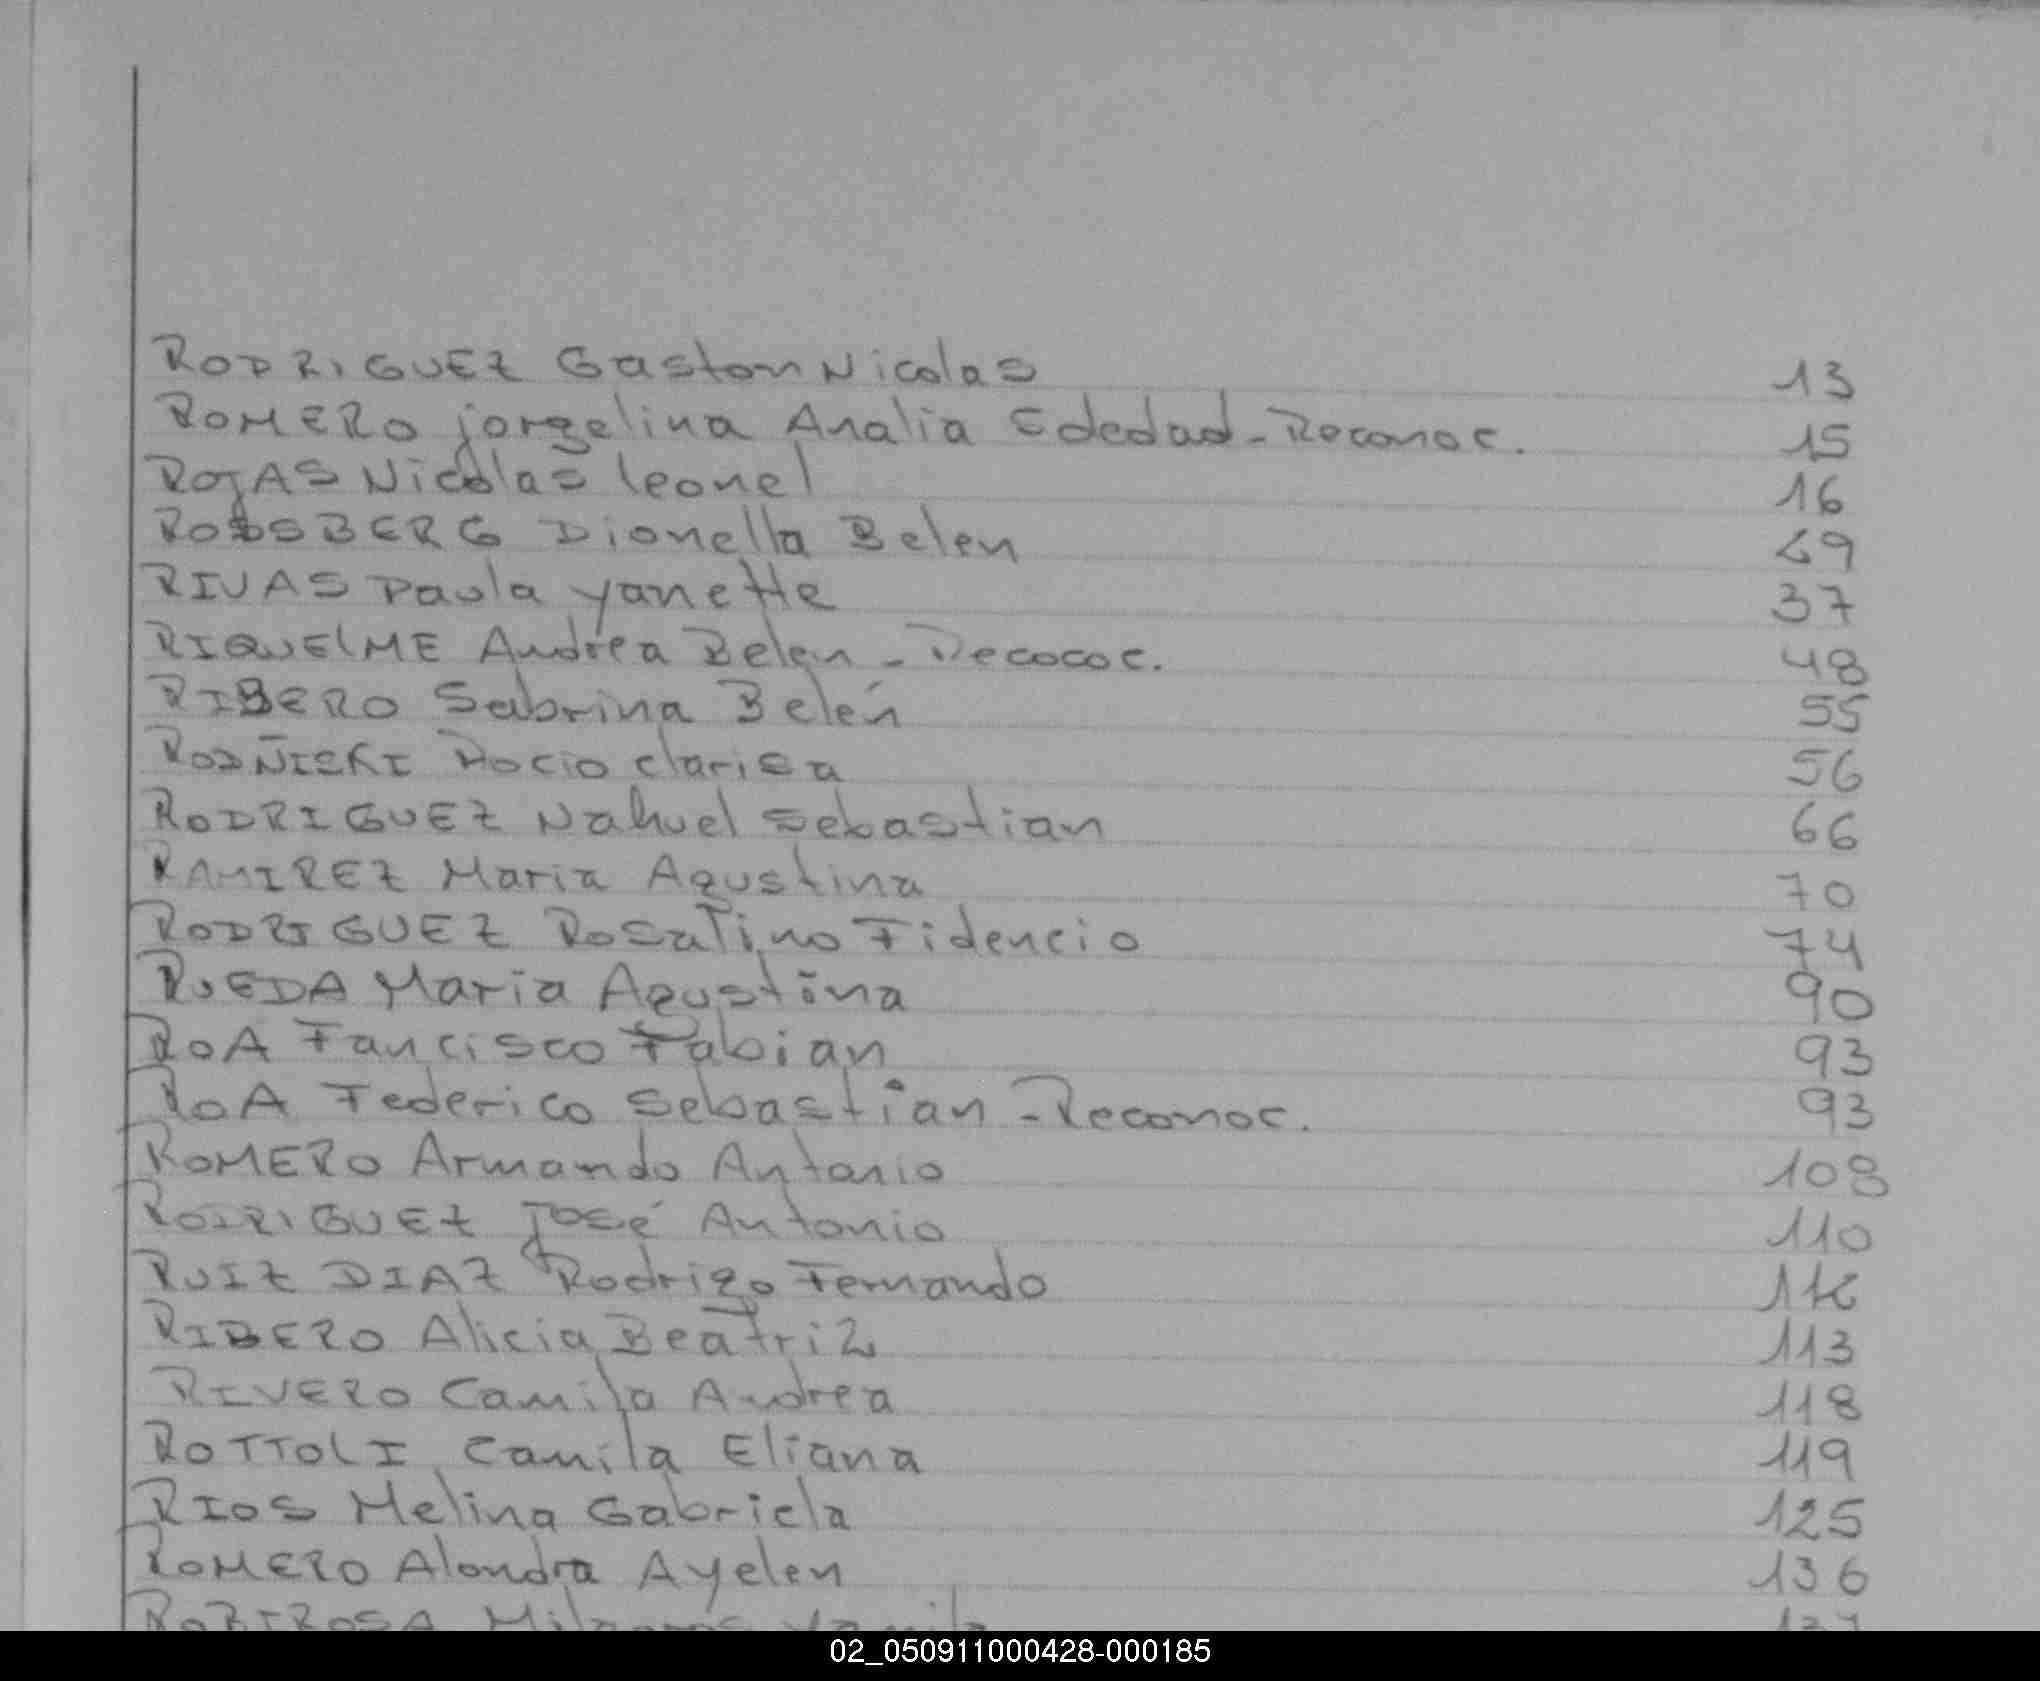 RODRIGUEZ Gaston Nicolas 13
ROMERO jorgelina Analia Ededad - Reconoc. 15
ROJAS Nicolas leonel 16
ROSSBERG Dionella Belen 29
RIVAS Paula yanette 37
RIQUElME Andrea Belen - Recococ. 48
RIBERO Sabrina Belén 55
RODÑISKI Rocio clarisa 56
RODRIGUEZ Nahuel Sebastian 66
RAMIREZ Maria Agustina 70
RODRIGUEZ Rosalino Fidencio 74
RUEDA Maria Agustina 90
ROA Fancisco Fabian 93
ROA Federico Sebastian - Reconoc. 93
ROMERO Armando Antonio 108
RODRIGUEZ José Antonio 110
RUIZ DIAZ Rodrigo Fernando 112
RIBERO Alicia Beatriz 113
RIVERO Camila Andrea 118
ROTTOLI Camila Eliana 119
RIOS Melina Gabriela 125
ROMERO Alondra Ayelen 136
ROBIROSA Milagros
02_050911000428-000185